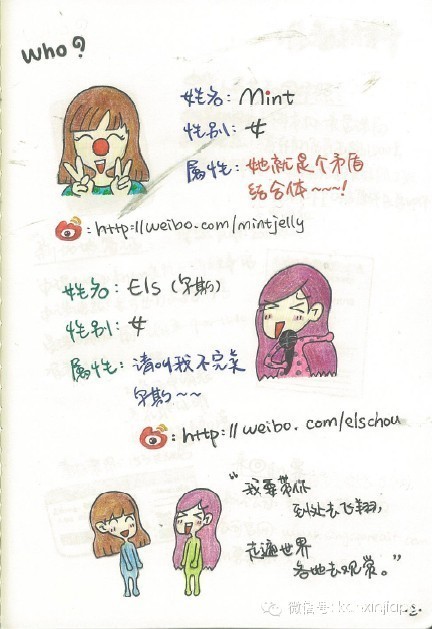 who?
姓名: Mint
性别: 女
属性: 她就是个矛盾
结合体~~~!
: http://weibo.com/mintjelly
姓名: Els (早期)
性别: 女
属性: 请叫我不完美
早期~~
: http://weibo.com/elschou
“我要带你
到处去飞翔,
走遍世界
各地去观赏。”
微信号: